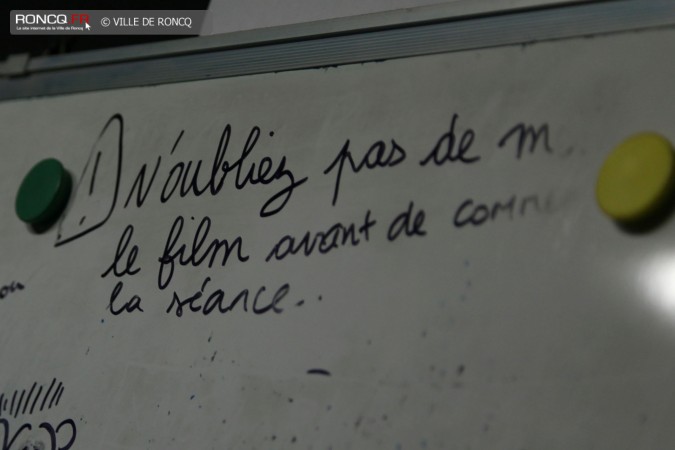 RONCQ.FR © VILLE DE RONCQ
Le site internet de la Ville de Roncq
! N'oubliez pas de m
le film avant de comme
la séance...
ou